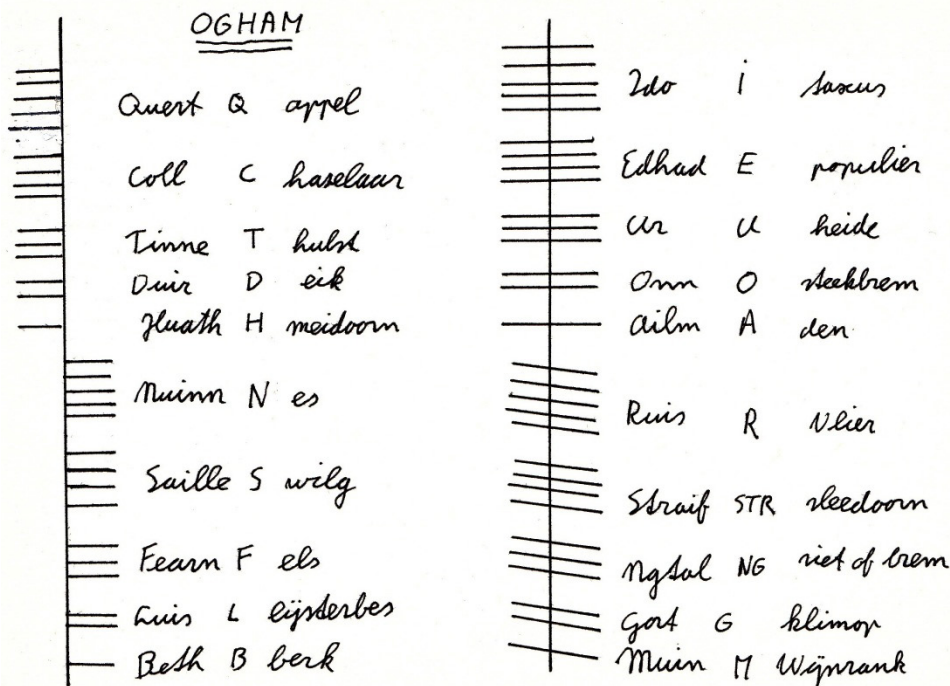 OGHAM
Quert Q appel
Coll C haselaar
Tinne T hulst
Duir D eik
Huath H meidoorn
Nuinn N es
Saille S wilg
Fearn F els
Luis L lijsterbes
Beth B berk
Ido I taxus
Edhad E populier
Ur U heide
Onn O steekbrem
Ailm A den
Ruis R Vlier
Straif STR sleedoorn
Ngtal NG riet of brem
Gort G klimop
Muin M Wijnrank